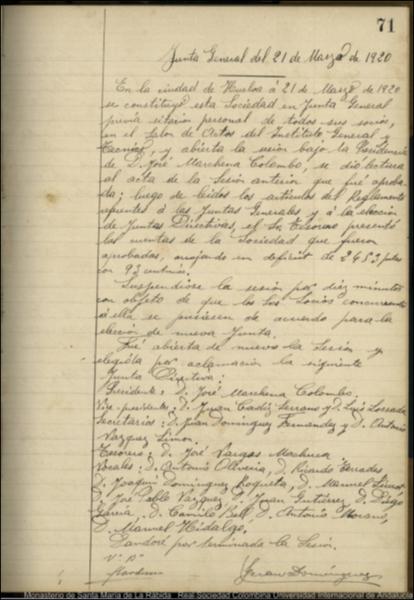 71
Junta General del 21 de Marzo de 1920
En la ciudad de Huelva á 21 de Marzo de 1920
se constituyó esta Sociedad en Junta General
previa citación personal de todos sus socios,
en el Salon de Actos del Instituto General y
Técnico, y abierta la sesión bajo la Presidencia
de D. José Marchena Colombo, se dio lectura
al acta de la Sesión anterior que fué aproba-
da; luego de leidos los artículos del Reglamento
referentes á las Juntas Generales y á la elección
de Juntas Directivas, el Sr. Tesorero presentó
las cuentas de la Sociedad que fueron
aprobadas, arrojando un déficit de 2453 ptas
con 93 centimos.
Suspendiose la sesión por diez minutos
con objeto de que los Sres Socios concurrentes
á ella se pusiesen de acuerdo para la
elección de nueva Junta.
Fué abierta de nuevo la Sesión y
elegida por aclamación la siguiente
Junta Directiva:
Presidente: D. José Marchena Colombo.
Vice-presidentes, D. Juan Cádiz Serrano y D. Luis
Secretarios: D. Juan Dominguez Fernandez y D. Antonio
Vazquez Limon.
Tesorero: D. José Vargas Machuca
Vocales: D. Antonio Oliveira, D. Ricardo Terrades
D. Joaquin Dominguez Roqueta, D. Manuel
D. José Pablo Vazquez, D. Juan Gutiérrez, D. Diego
Garcia, D. Camilo Bell, D. Antonio Morano,
D. Manuel Hidalgo.
Dandose por terminada la Sesión.
Vº Bº
Marchena
Juan Dominguez
Monasterio de Santa María de La Rábida - Real Sociedad Colombina Universidad Internacional de Andalucía